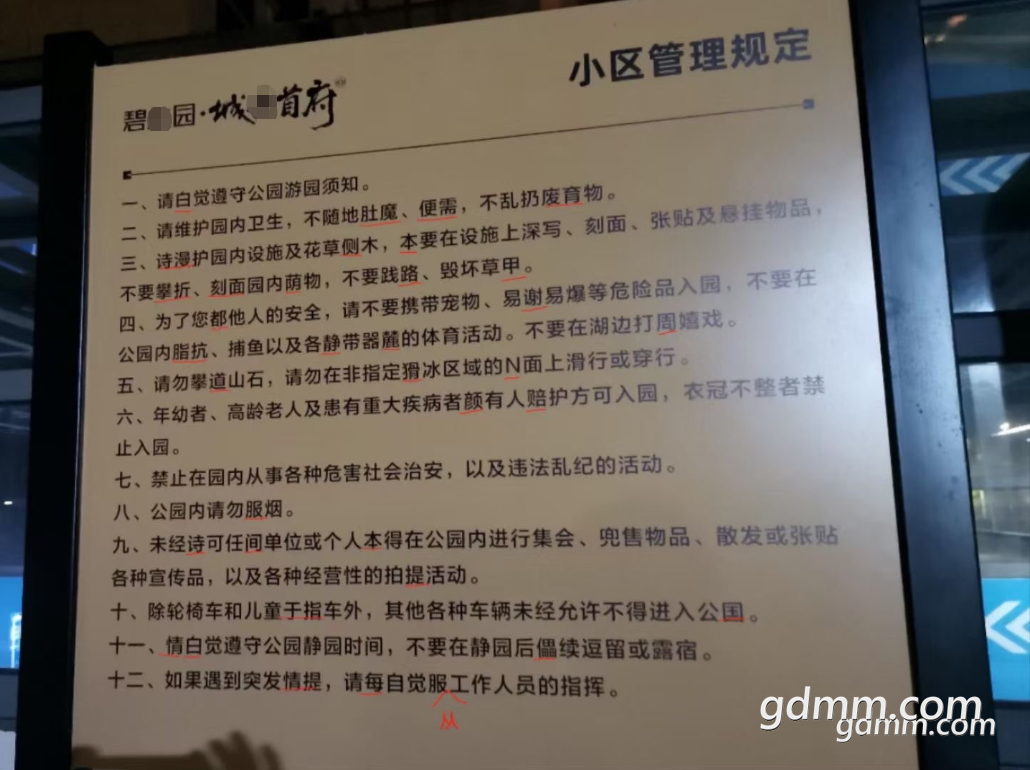 小区管理规定
碧园·城首府
一、请白觉遵守公园游园须知。
二、请维护园内卫生，不随地肚魔、便需，不乱扔废育物。
三、诗漫护园内设施及花草侧木，本要在设施上深写、刻面、张贴及悬挂物品，
不要攀折、刻面园内荫物，不要践路、毁坏草甲。
四、为了您都他人的安全，请不要携带宠物、易谢易爆等危险品入园，不要在
公园内脂抗、捕鱼以及各静带器麓的体育活动。不要在湖边打周嬉戏。
五、请勿攀道山石，请勿在非指定猾冰区域的N面上滑行或穿行。
六、年幼者、高龄老人及患有重大疾病者颜有人赔护方可入园，衣冠不整者禁
止入园。
七、禁止在园内从事各种危害社会治安，以及违法乱纪的活动。
八、公园内请勿服烟。
九、未经诗可任间单位或个人本得在公园内进行集会、兜售物品、散发或张贴
各种宣传品，以及各种经营性的拍提活动。
十、除轮椅车和儿童于指车外，其他各种车辆未经允许不得进入公国。
十一、情白觉遵守公园静园时间，不要在静园后儡续逗留或露宿。
十二、如果遇到突发情提，请每自觉服工作人员的指挥。
从
gdmm.com
gamm.com